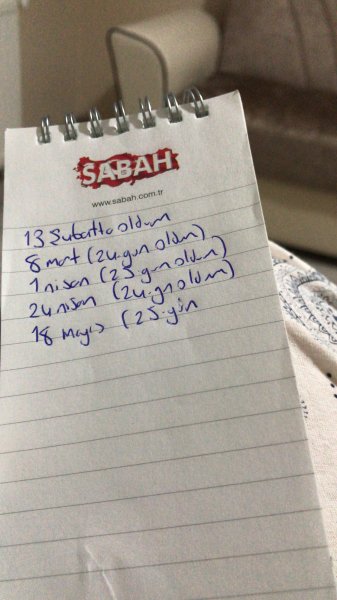 SABAH
www.sabah.com.tr
13 Şubatta oldum
8 mart (24.gün oldum)
1 nisan (25.gün oldum)
24 nisan (24.gn oldum)
18 mayıs (25.gün